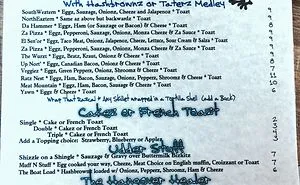 With Hashbrownz or Taterz Medley
SouthWestern * Eggs, Sausage, Onions, Cheese and Jalapenos * Toast
NorthEastern * Same as above but backwards * Toast
Da Hammer * Eggs, Ham (or Sausage or Bacon) & Cheese * Toast
Za Pizza * Eggs, Pepperoni, Sausage, Onions, Monza Cheese & Za Sauce * Toast
El Sen'or * Eggs, Taco Meat, Onions, Jalapenos, Cheese, Lettuce, Sour Cream & Salsa * Toast
Za Pizza * Eggs, Pepperoni, Sausage, Onions, Monza Cheese & Za Sauce * Toast
The Wurst * Eggs, Bratz, Kraut, Onions & Cheese * Toast
Up Nort' * Eggs, Canadian Bacon, Onions & Cheese * Toast
Veggies * Eggs, Green Peppers, Onions, Shrooms & Cheese * Toast
Ratz Nest * Eggs, Ham, Bacon, Sausage, Onions, Peppers, Shrooms & Cheese * Toast
Meat Mountain * Eggs, Ham, Bacon, Sausage & Cheese * Toast
Yawn * Eggs & Cheese * Toast
Any Skillet Wrapped in a Tortilla Shell (add a Buck)
Cakes or French Toast
Single * Cake or French Toast
Double * Cakez or French Toast
Triple * Cakez or French Toast
Add a Topping choice: Strawberry, Blueberry or Apples
Udder Stuff
Shizzle on a Shingle * Sausage & Gravy over Buttermilk Bizkitz
Muff N Stuff * Egg cooked your way, Cheese, Meat Choice on English muffin, Croizzant or Toast
The Boat Load * Hashbrownz loaded w/ Onions, Peppers, Shrooms, Ham & Cheese
The Hangover Healer